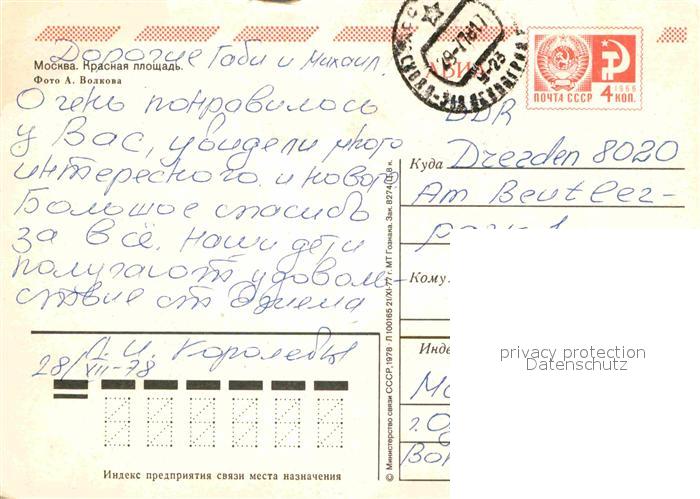 Дорогие Габи и Михаил.
Москва. Красная площадь.
Фото А. Волкова
Очень понравилось
у Вас, увидели много
интересного и нового
Большое спасибо
за всё. Наши дети
получают удоволь-
ствие от
Л. И. Королевы
28/XII-78
Индекс предприятия связи места назначения
© Министерство связи СССР, 1978 Л 100165 21/XI-77 г. МТ Гознака. Зак. 8274/Ц. 8 к.
АВИА
ПОЧТА СССР 4 КОП.
1966
DDR
Куда Drezden 8020
Am Beutler-
Кому
Инде
privacy protection
Datenschutz
г. О